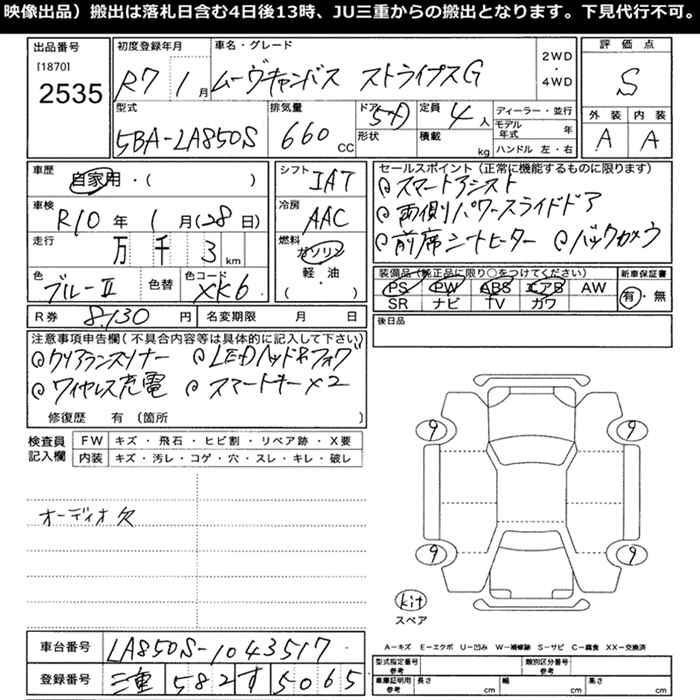 映像出品）搬出は落札日含む4日後13時、JU三重からの搬出となります。下見代行不可。
出品番号
[1870]
2535
初度登録年月
R7 1月
車名・グレード
ムーヴキャンバス ストライプスG
2WD
・
4WD
評価点
S
型式
5BA-LA850S
排気量
660 CC
ドア 5D
形状
定員 4人
積載 kg
ディーラー・並行
モデル年式 年
ハンドル 左・右
外装 内装
A A
車歴
自家用・( )
車検
R10年 1月(28日)
走行
万 千 3 km
色
ブルーII
色替
色コード
XK6
シフト
IAT
冷房
AAC
燃料
ガソリン
軽・油
( )
セールスポイント（正常に機能するものに限ります）
スマートアシスト
両側パワースライドドア
前席シートヒーター バックカメラ
装備品（純正品に限り○をつけてください）
PS PW ABS エアB AW
SR ナビ TV カワ
新車保証書
有・無
R券 8,130円
名変期限 月 日
後日品
注意事項申告欄(不具合内容等は具体的に記入して下さい)
クリアランスソナー LEDヘッド&フォグ
ワイヤレス充電 スマートキー×2
修復歴 有(箇所 )
検査員
記入欄
FW キズ・飛石・ヒビ割・リペア跡・X要
内装 キズ・汚レ・コゲ・穴・スレ・キレ・破レ
オーディオ欠
9 9
9 9
kit
スペア
A－キズ E－エクボ U－凹み W－補修跡 S－サビ C－腐食 XX－交換済
車台番号 LA850S-1043517
登録番号 三重 582 す 5065
型式指定番号
参考
類別区分番号
参考
車庫証明用
参考
長さ cm 幅 cm 高さ cm